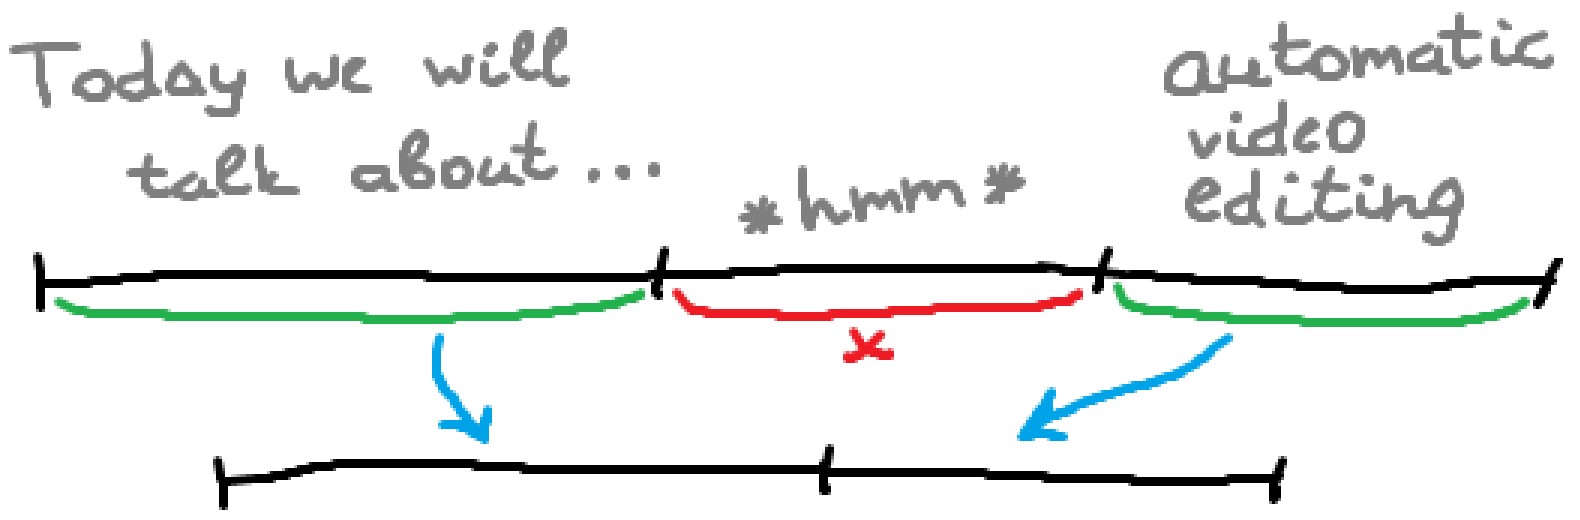 Today we will
talk about...
*hmm*
automatic
video
editing